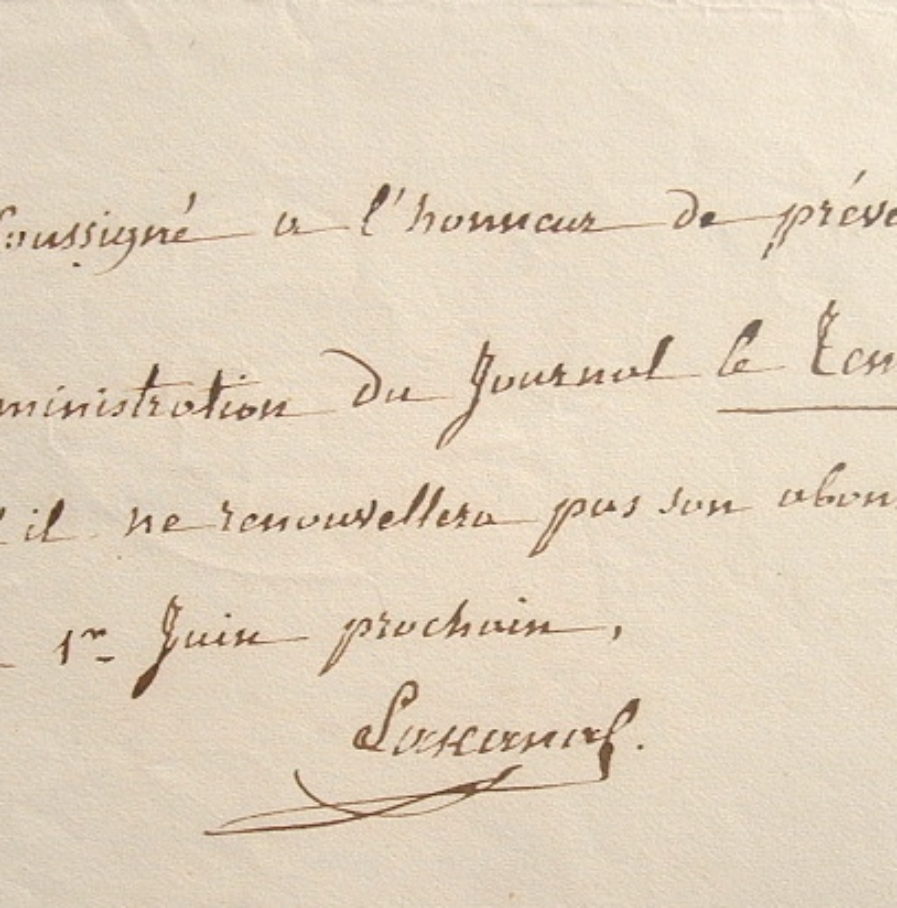 soussigné a l'honneur de préve
ministration du Journal le Tem
il ne renouvellera pas son abon
1er Juin prochain,